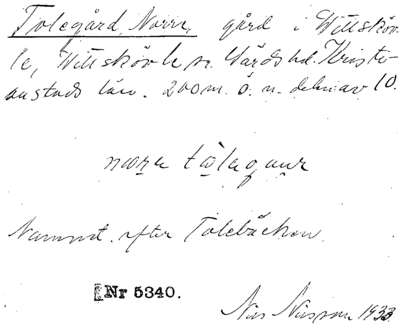 Tolegård, Norra, gård i Vittsköv-
le, Vittskövle sn. Gärds hd. Kristi-
anstads län. 200 m. ö. n. delen av 10.
nora tolagaur
Namnet efter Tolebäcken.
Nr 5340.
Nils Nilsson 1933